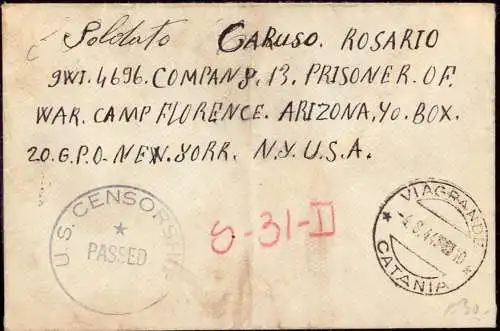 Soldato CARUSO. ROSARIO
9WI. 4696. COMPANY. 13. PRISONER. OF.
WAR. CAMP FLORENCE. ARIZONA, Yo. BOX.
20. G. P. O- NEW. YORK. N.Y. U.S.A.
U.S. CENSORSHIP
PASSED
S-31-D
VIAGRANDE
CATANIA